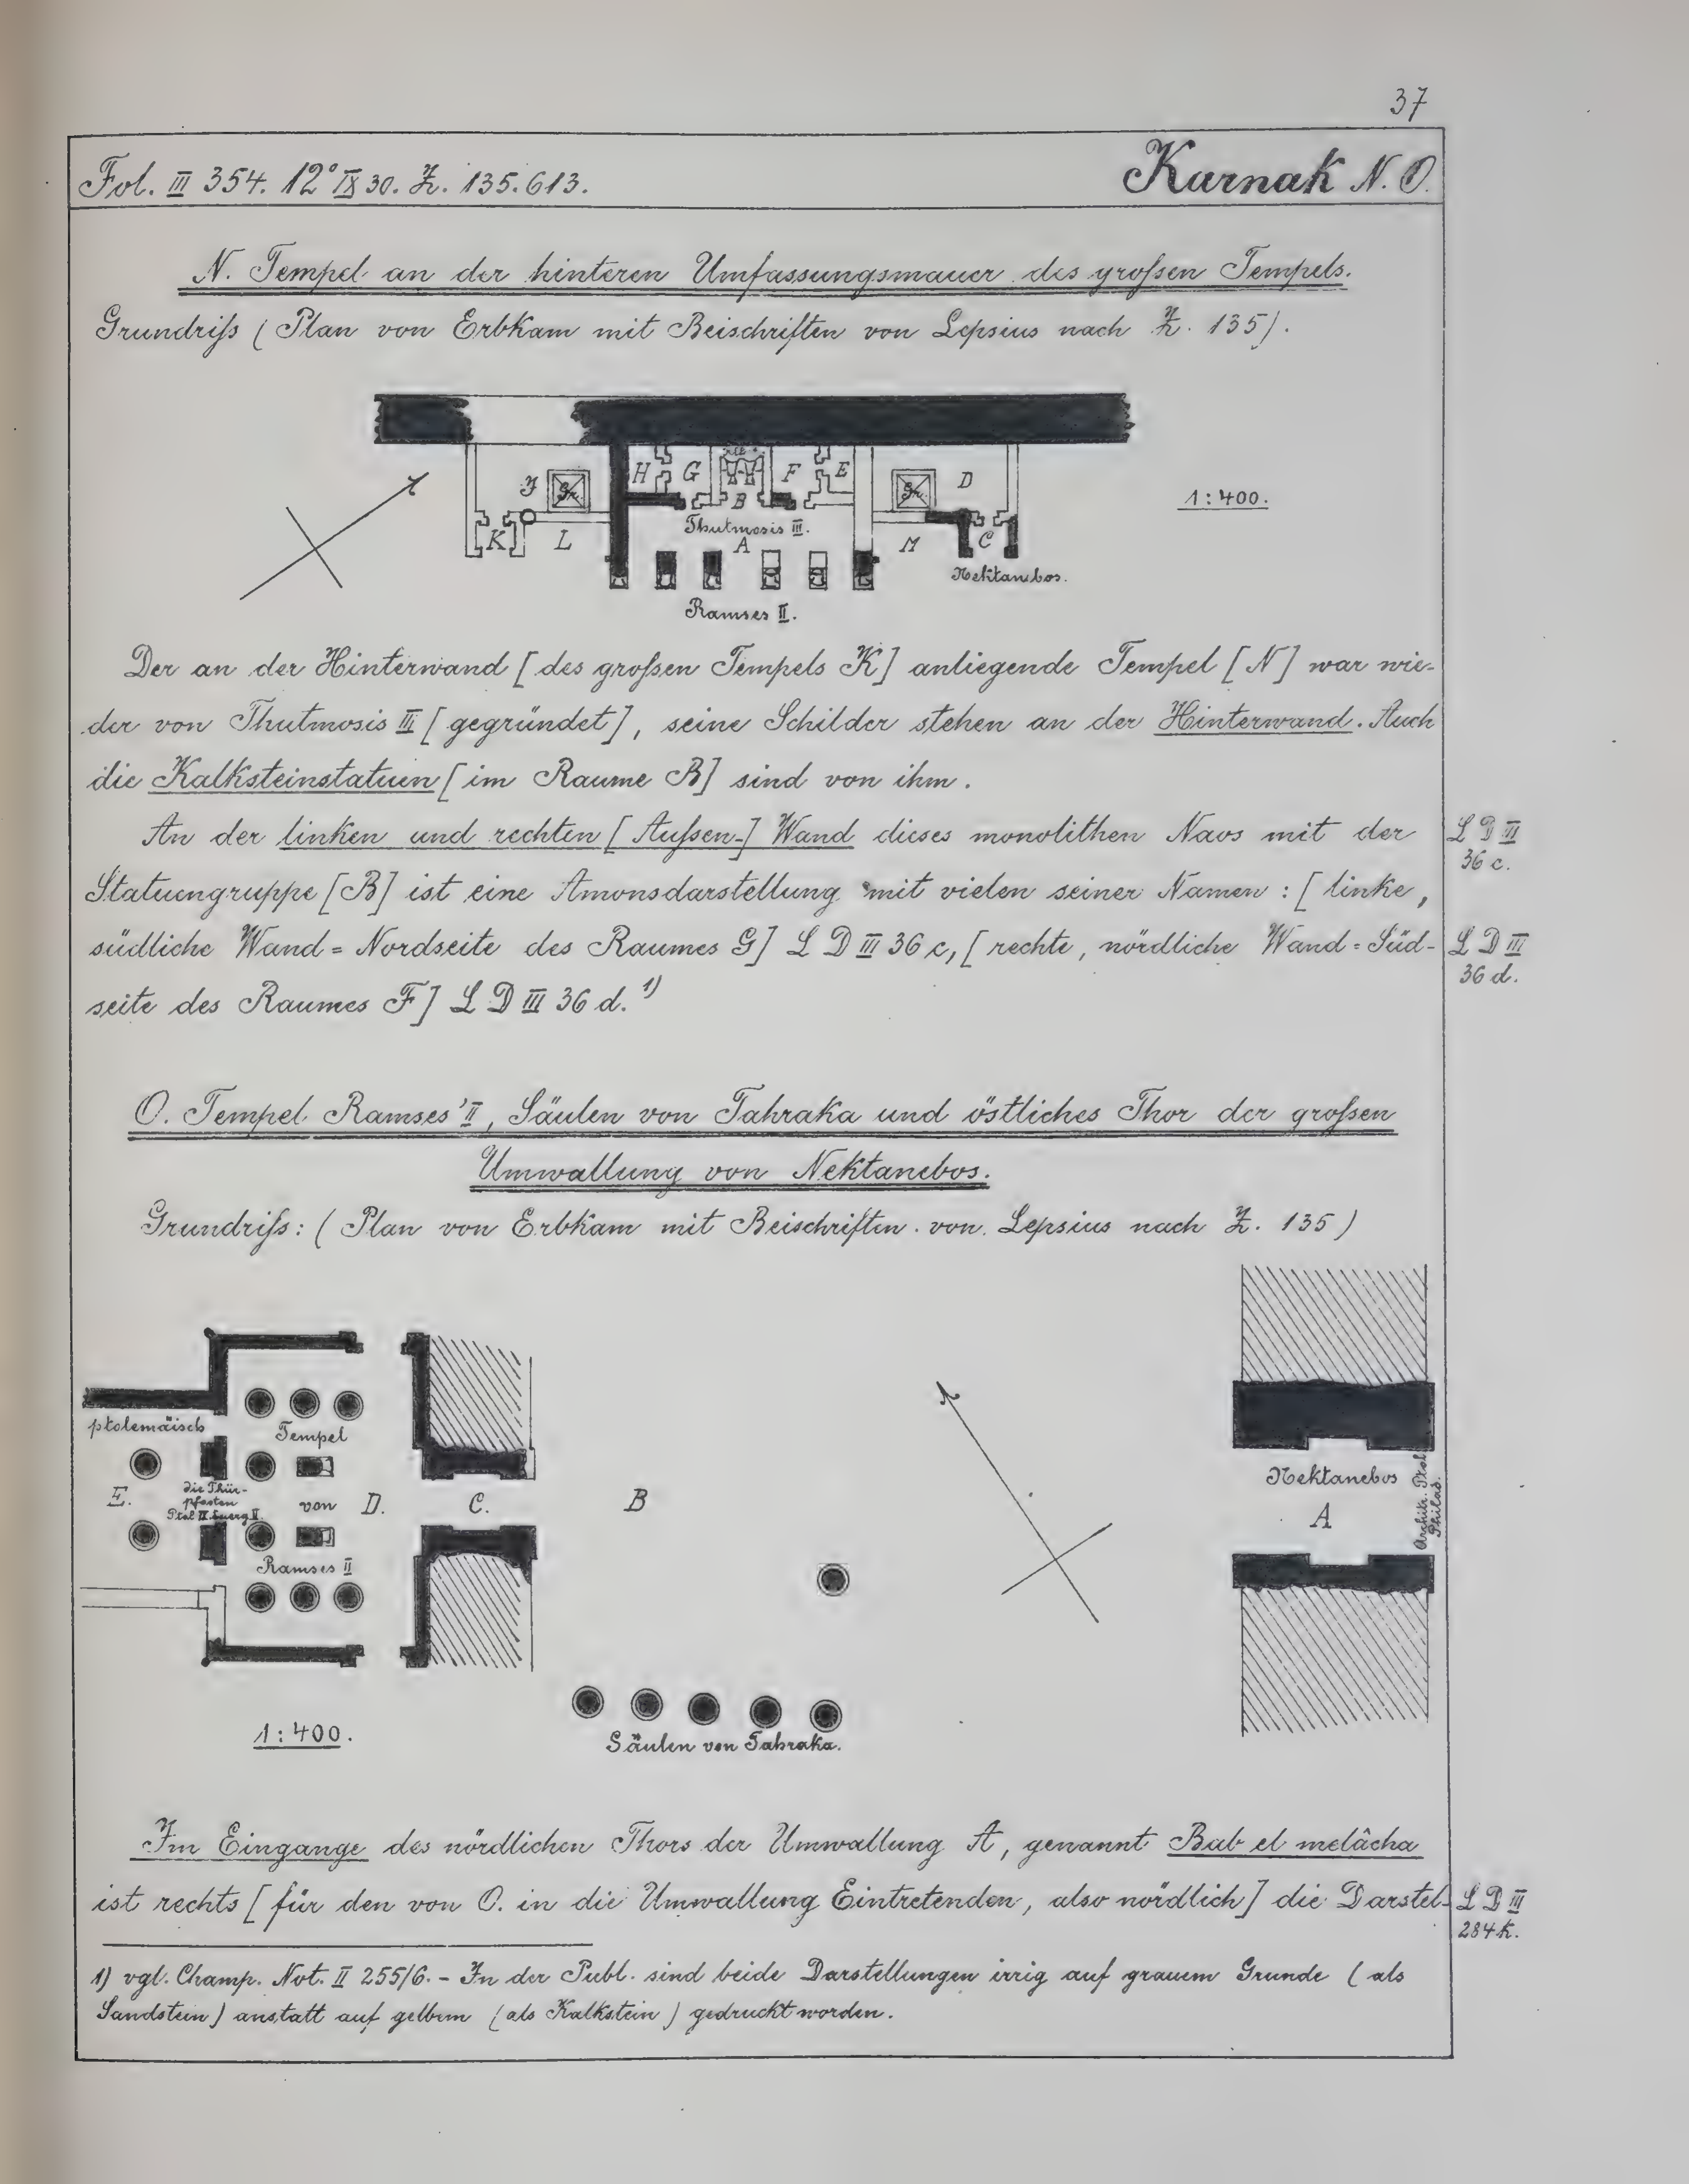 37
Fol. III 354. 12° IX 30. Z. 135. 613.
Karnak N. O.
N. Tempel an der hinteren Umfassungsmauer des großen Tempels.
Grundriß (Plan von Erbkam mit Beischriften von Lepsius nach Z. 135).
H G F E
J Gr. B Gr. D
1:400.
Thutmosis III.
K L A M C
Nektanebos.
Ramses II.
Der an der Hinterwand [des großen Tempels K] anliegende Tempel [N] war wie-
der von Thutmosis III [gegründet], seine Schilder stehen an der Hinterwand. Auch
die Kalksteinstatuen [im Raume B] sind von ihm.
An der linken und rechten [Außen-] Wand dieses monolithen Naos mit der
L D III
36 c.
Statuengruppe [B] ist eine Amonsdarstellung mit vielen seiner Namen: [linke,
südliche Wand = Nordseite des Raumes G] L D III 36 c, [rechte, nördliche Wand = Süd-
L D III
36 d.
seite des Raumes F] L D III 36 d. 1)
O. Tempel Ramses' II, Säulen von Tahraka und östliches Thor der großen
Umwallung von Nektanebos.
Grundriß: (Plan von Erbkam mit Beischriften von Lepsius nach Z. 135)
ptolemäisch
Tempel
Nektanebos
Archit. Ptol.
Philad.
E.
die Thür-
pfosten
Ptol IX Euerg II.
von D. C. B
A
Ramses II
1:400.
Säulen von Tahraka.
Im Eingange des nördlichen Thors der Umwallung A, genannt Bab el melâcha
ist rechts [für den von O. in die Umwallung Eintretenden, also nördlich] die Darstel-
L D III
284 k.
1) vgl. Champ. Not. II 255/6. - In der Publ. sind beide Darstellungen irrig auf grauem Grunde (als
Sandstein) anstatt auf gelbem (als Kalkstein) gedruckt worden.